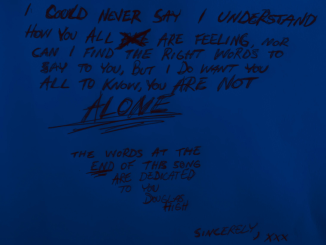 I COULD NEVER SAY I UNDERSTAND
HOW YOU ALL ARE FEELING, NOR
CAN I FIND THE RIGHT WORDS TO
SAY TO YOU, BUT I DO WANT YOU
ALL TO KNOW, YOU ARE NOT
ALONE
THE WORDS AT THE
END OF THIS SONG
ARE DEDICATED
TO YOU
SINCERELY, J. XXX